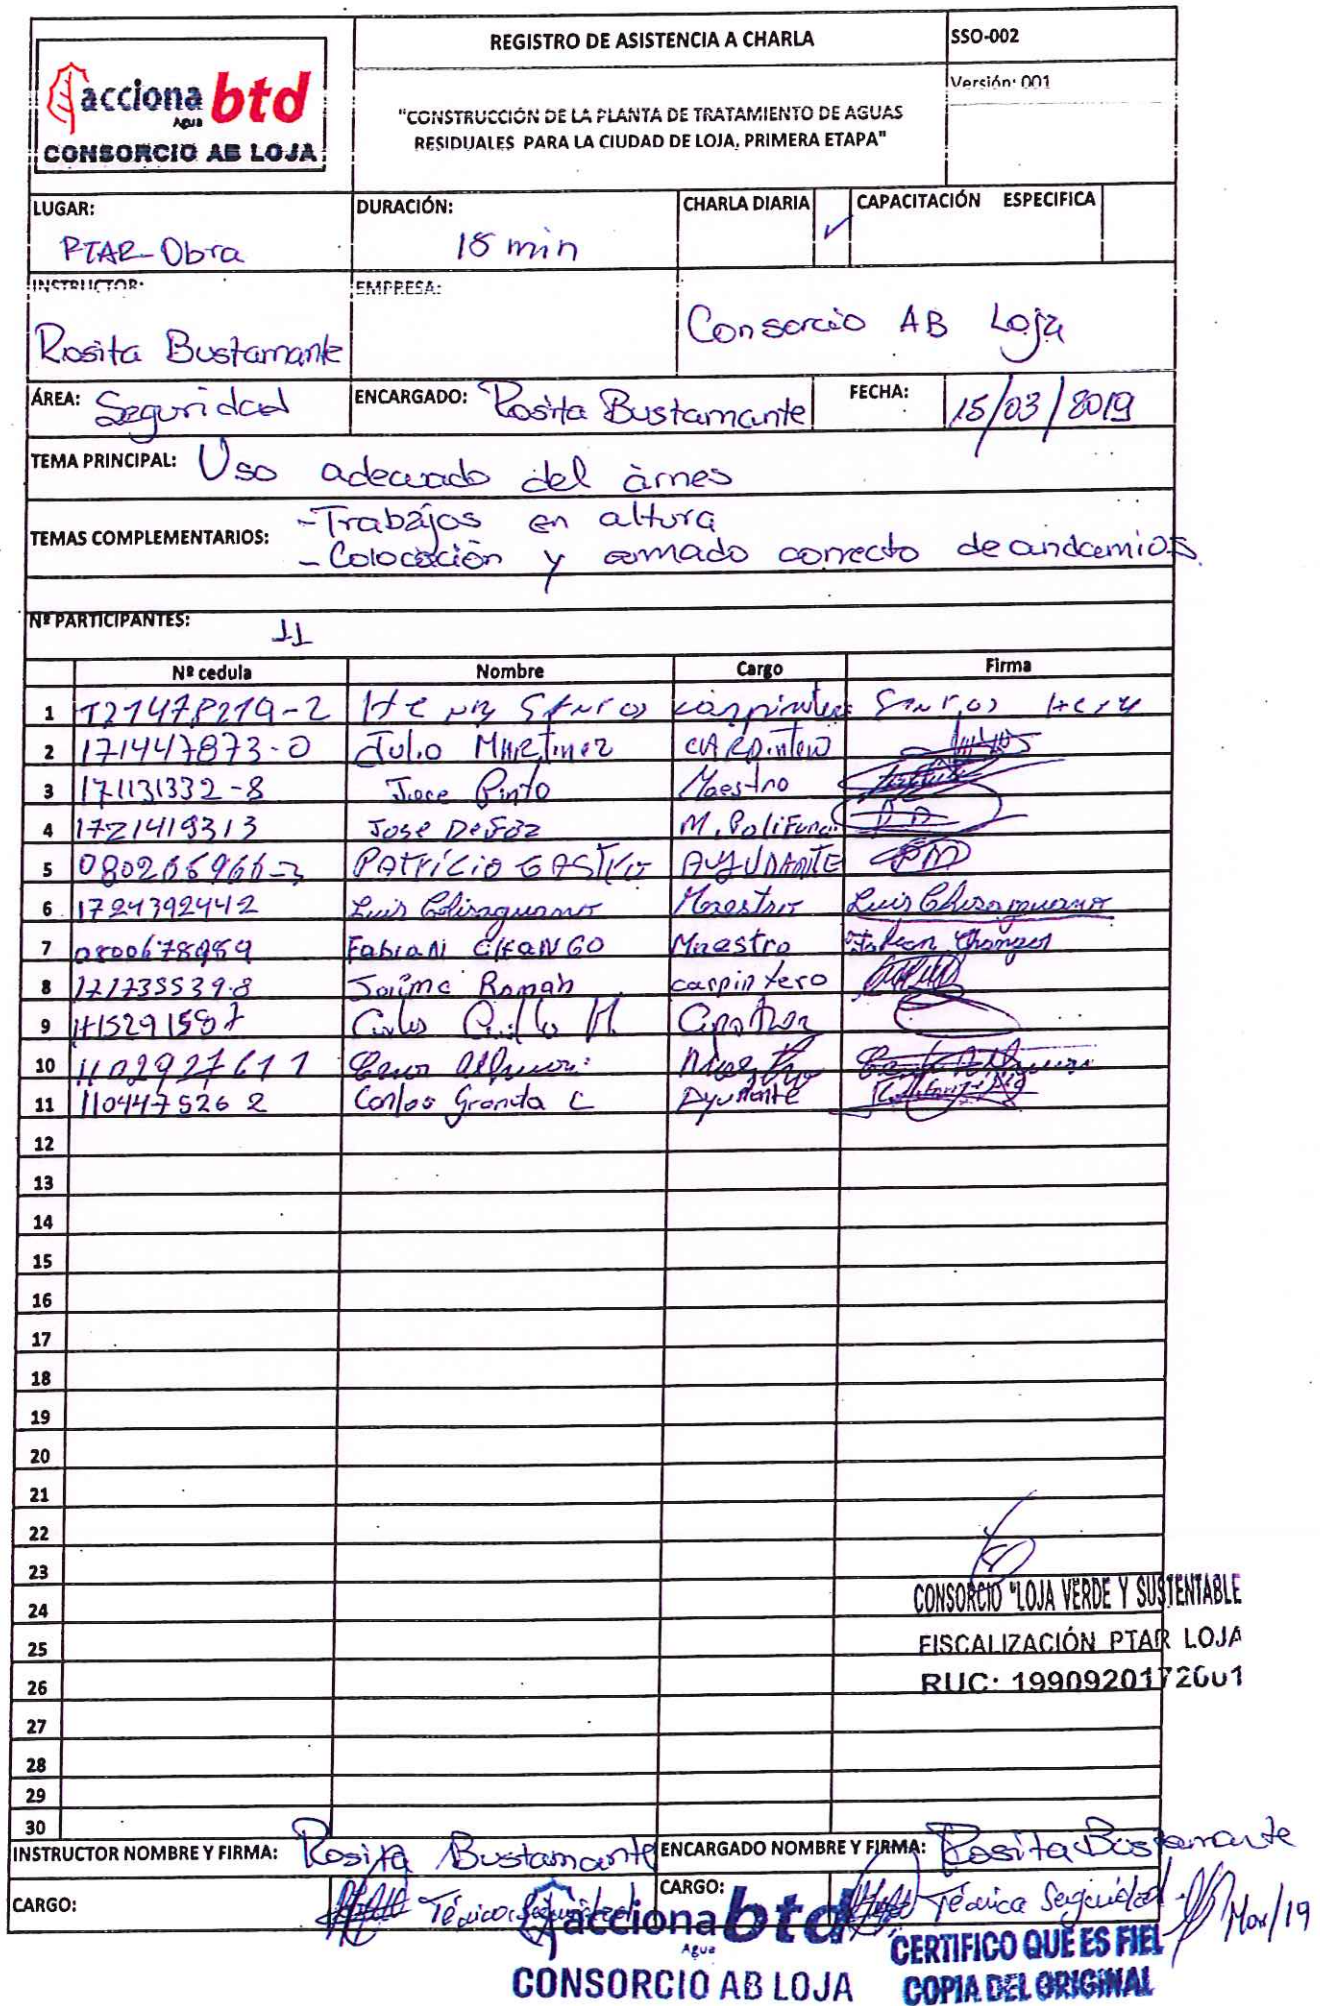 acciona btd
Agua
CONSORCIO AB LOJA
REGISTRO DE ASISTENCIA A CHARLA
SSO-002
Versión: 001
"CONSTRUCCIÓN DE LA PLANTA DE TRATAMIENTO DE AGUAS
RESIDUALES PARA LA CIUDAD DE LOJA, PRIMERA ETAPA"
LUGAR: PTAR-Obra
DURACIÓN: 15 min
CHARLA DIARIA ✓
CAPACITACIÓN ESPECIFICA
INSTRUCTOR: Rosita Bustamante
EMPRESA: Consorcio AB Loja
ÁREA: Seguridad
ENCARGADO: Rosita Bustamante
FECHA: 15/03/2019
TEMA PRINCIPAL: Uso adecuado del àrnes
TEMAS COMPLEMENTARIOS: -Trabajos en altura
- Colocación y armado correcto de andamios.
Nº PARTICIPANTES: 11
Nº cedula Nombre Cargo Firma
1
2 171447873-0 Julio Martinez carpintero
3 171131332-8 Jose Pinto Maestro
4 1721419313 Jose M. Polifunc
5 080266966-3 Patricio AYUDANTE
6 1724392442 Luis Chisaguano Maestro Luis Chisaguano
7 Fabian CHANGO Maestro Fabian Chango
8 171735539-8 Jaime Roman carpintero
9 Carlos
10 1102927611 Maestro
11 110447526 2 Carlos Granda C Ayudante
12
13
14
15
16
17
18
19
20
21
22
23
24
25
26
27
28
29
30
CONSORCIO "LOJA VERDE Y SUSTENTABLE
FISCALIZACIÓN PTAR LOJA
RUC: 1990920172001
INSTRUCTOR NOMBRE Y FIRMA: Rosita Bustamante
ENCARGADO NOMBRE Y FIRMA: Rosita Bustamante
CARGO: Técnica Seguridad
CARGO: Técnica Seguridad
Mar/19
acciona btd
Agua
CONSORCIO AB LOJA
CERTIFICO QUE ES FIEL
COPIA DEL ORIGINAL